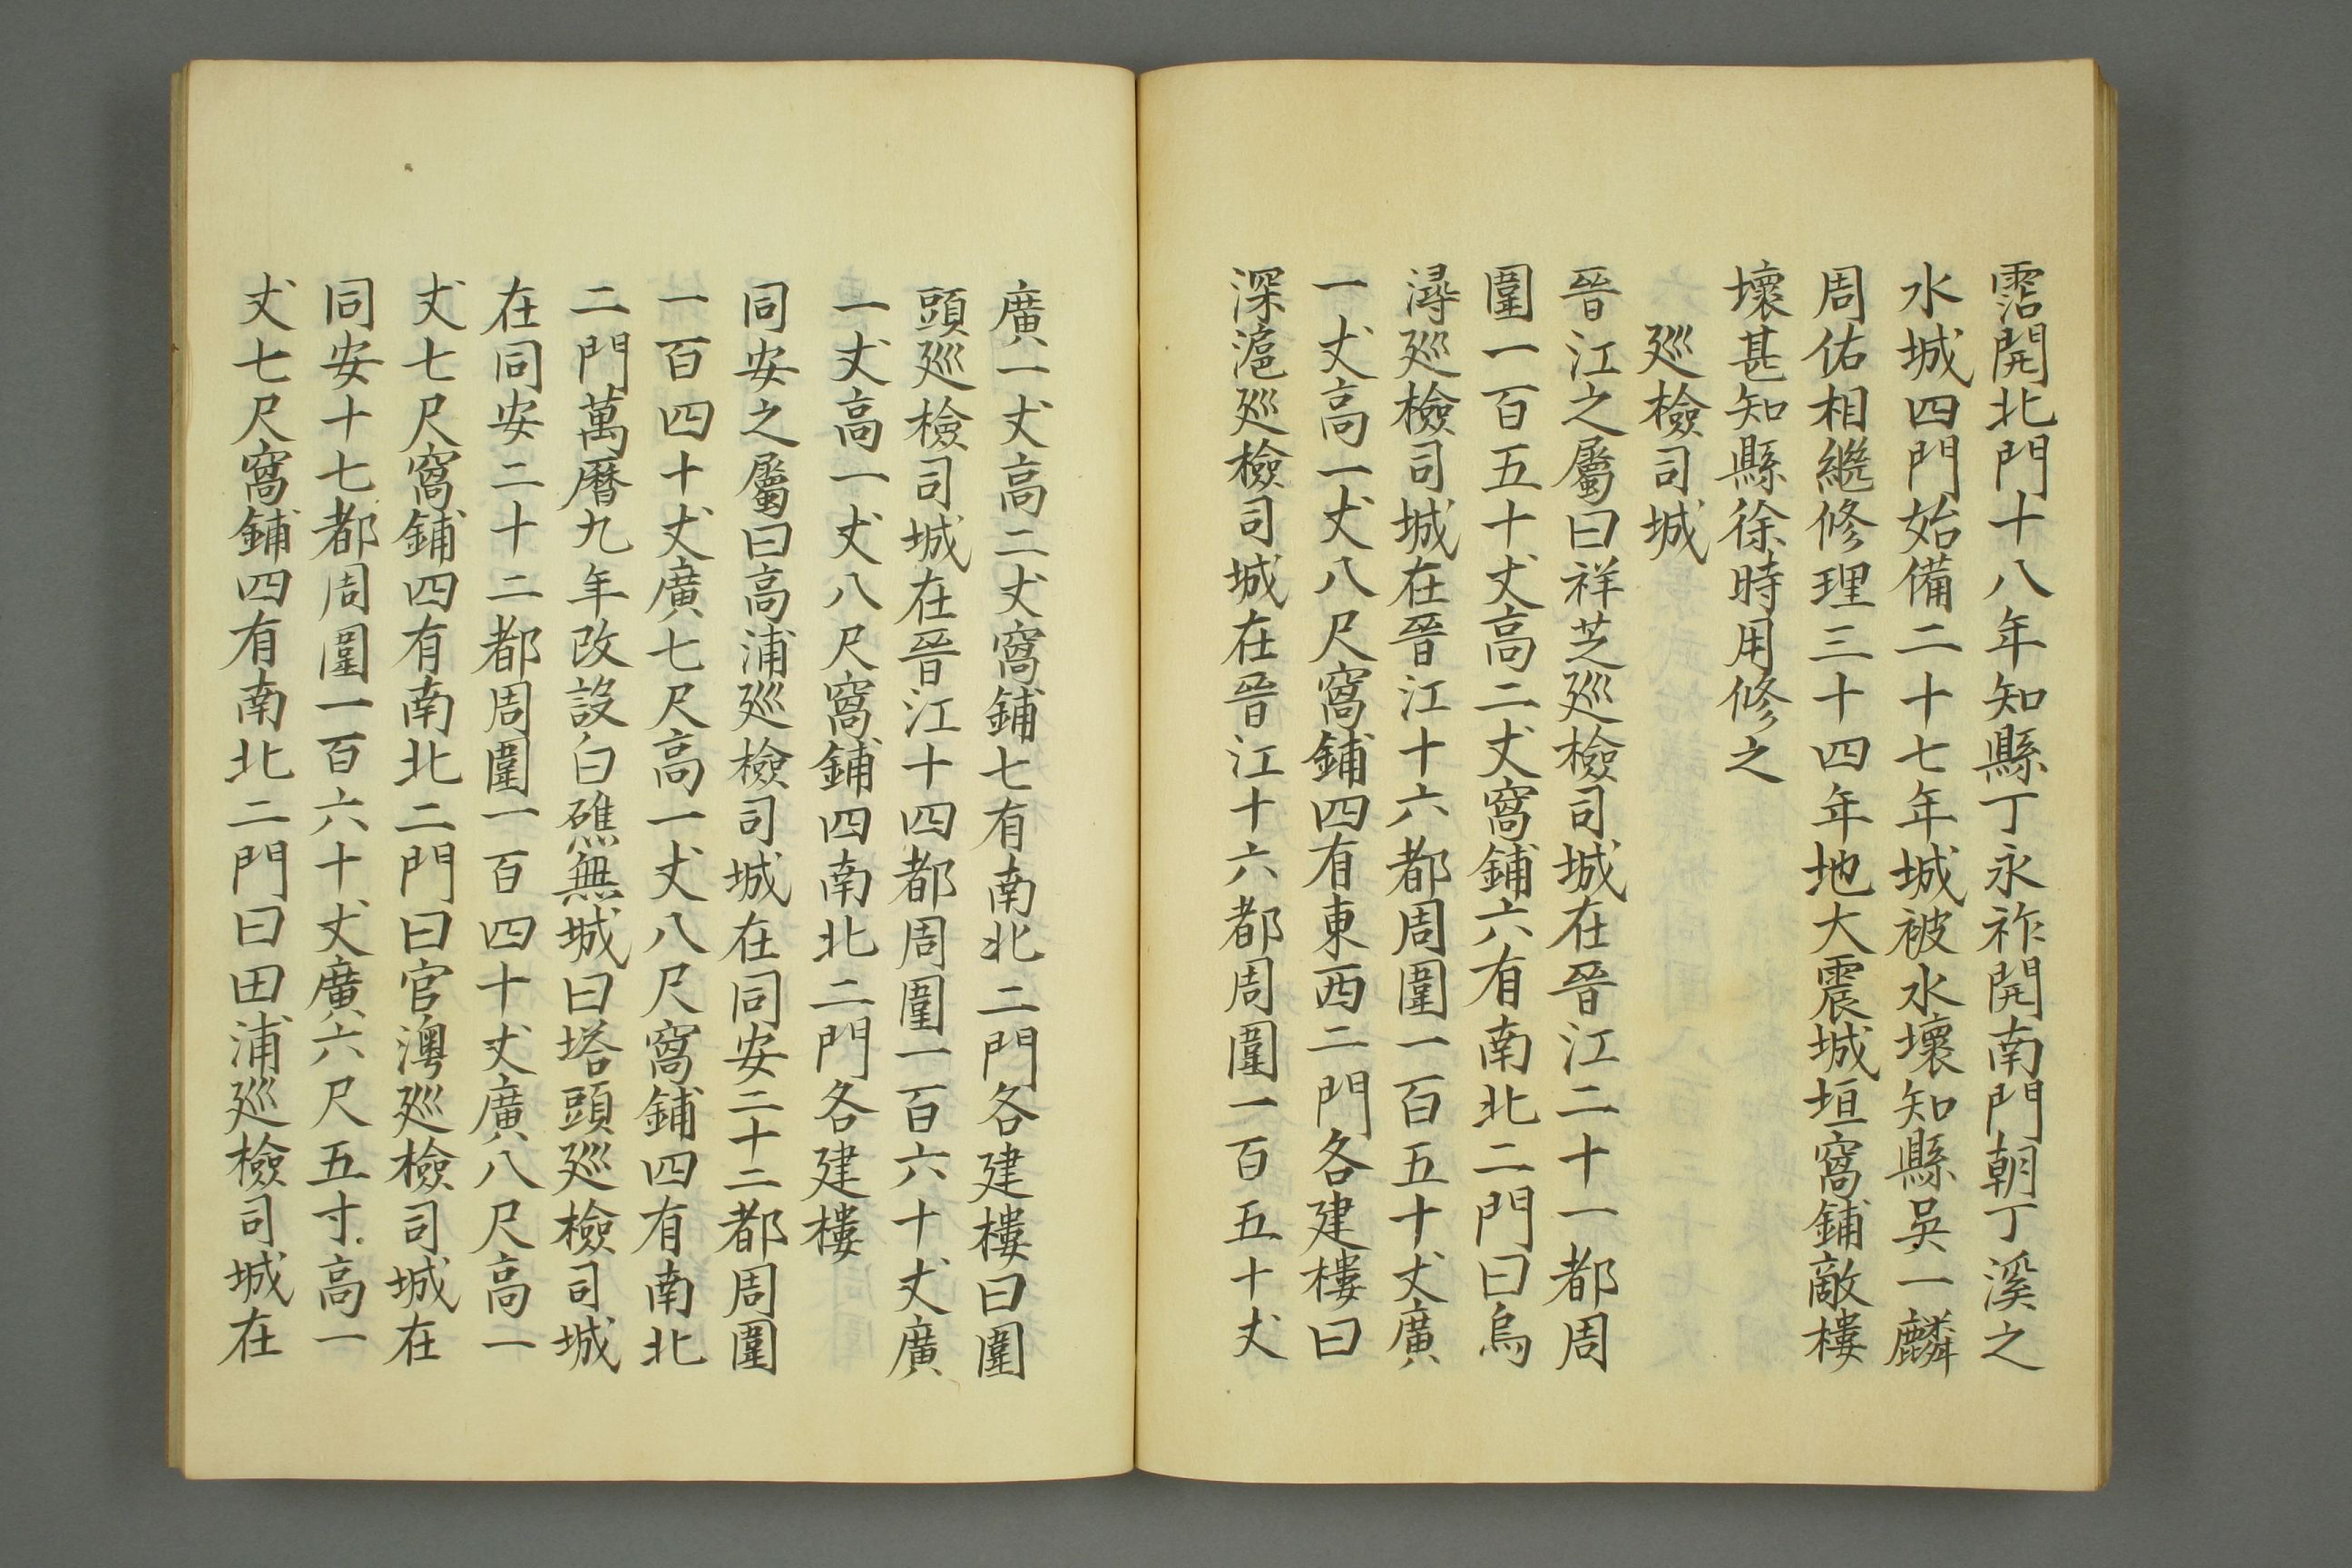 霑開北門十八年知縣丁永祚開南門朝丁溪之
水城四門始備二十七年城被水壞知縣吳一麟
周佑相繼修理三十四年地大震城垣窩鋪敵樓
壞甚知縣徐時用修之
廵檢司城
晉江之屬曰祥芝廵檢司城在晉江二十一都周
圍一百五十丈高二丈窩鋪六有南北二門曰烏
潯廵檢司城在晉江十六都周圍一百五十丈廣
一丈高一丈八尺窩鋪四有東西二門各建樓曰
深滬廵檢司城在晉江十六都周圍一百五十丈
廣一丈高二丈窩鋪七有南北二門各建樓曰圍
頭廵檢司城在晉江十四都周圍一百六十丈廣
一丈高一丈八尺窩鋪四南北二門各建樓
同安之屬曰高浦廵檢司城在同安二十二都周圍
一百四十丈廣七尺高一丈八尺窩鋪四有南北
二門萬曆九年改設白礁無城曰塔頭廵檢司城
在同安二十二都周圍一百四十丈廣八尺高一
丈七尺窩鋪四有南北二門曰官澳廵檢司城在
同安十七都周圍一百六十丈廣六尺五寸高一
丈七尺窩鋪四有南北二門曰田浦廵檢司城在